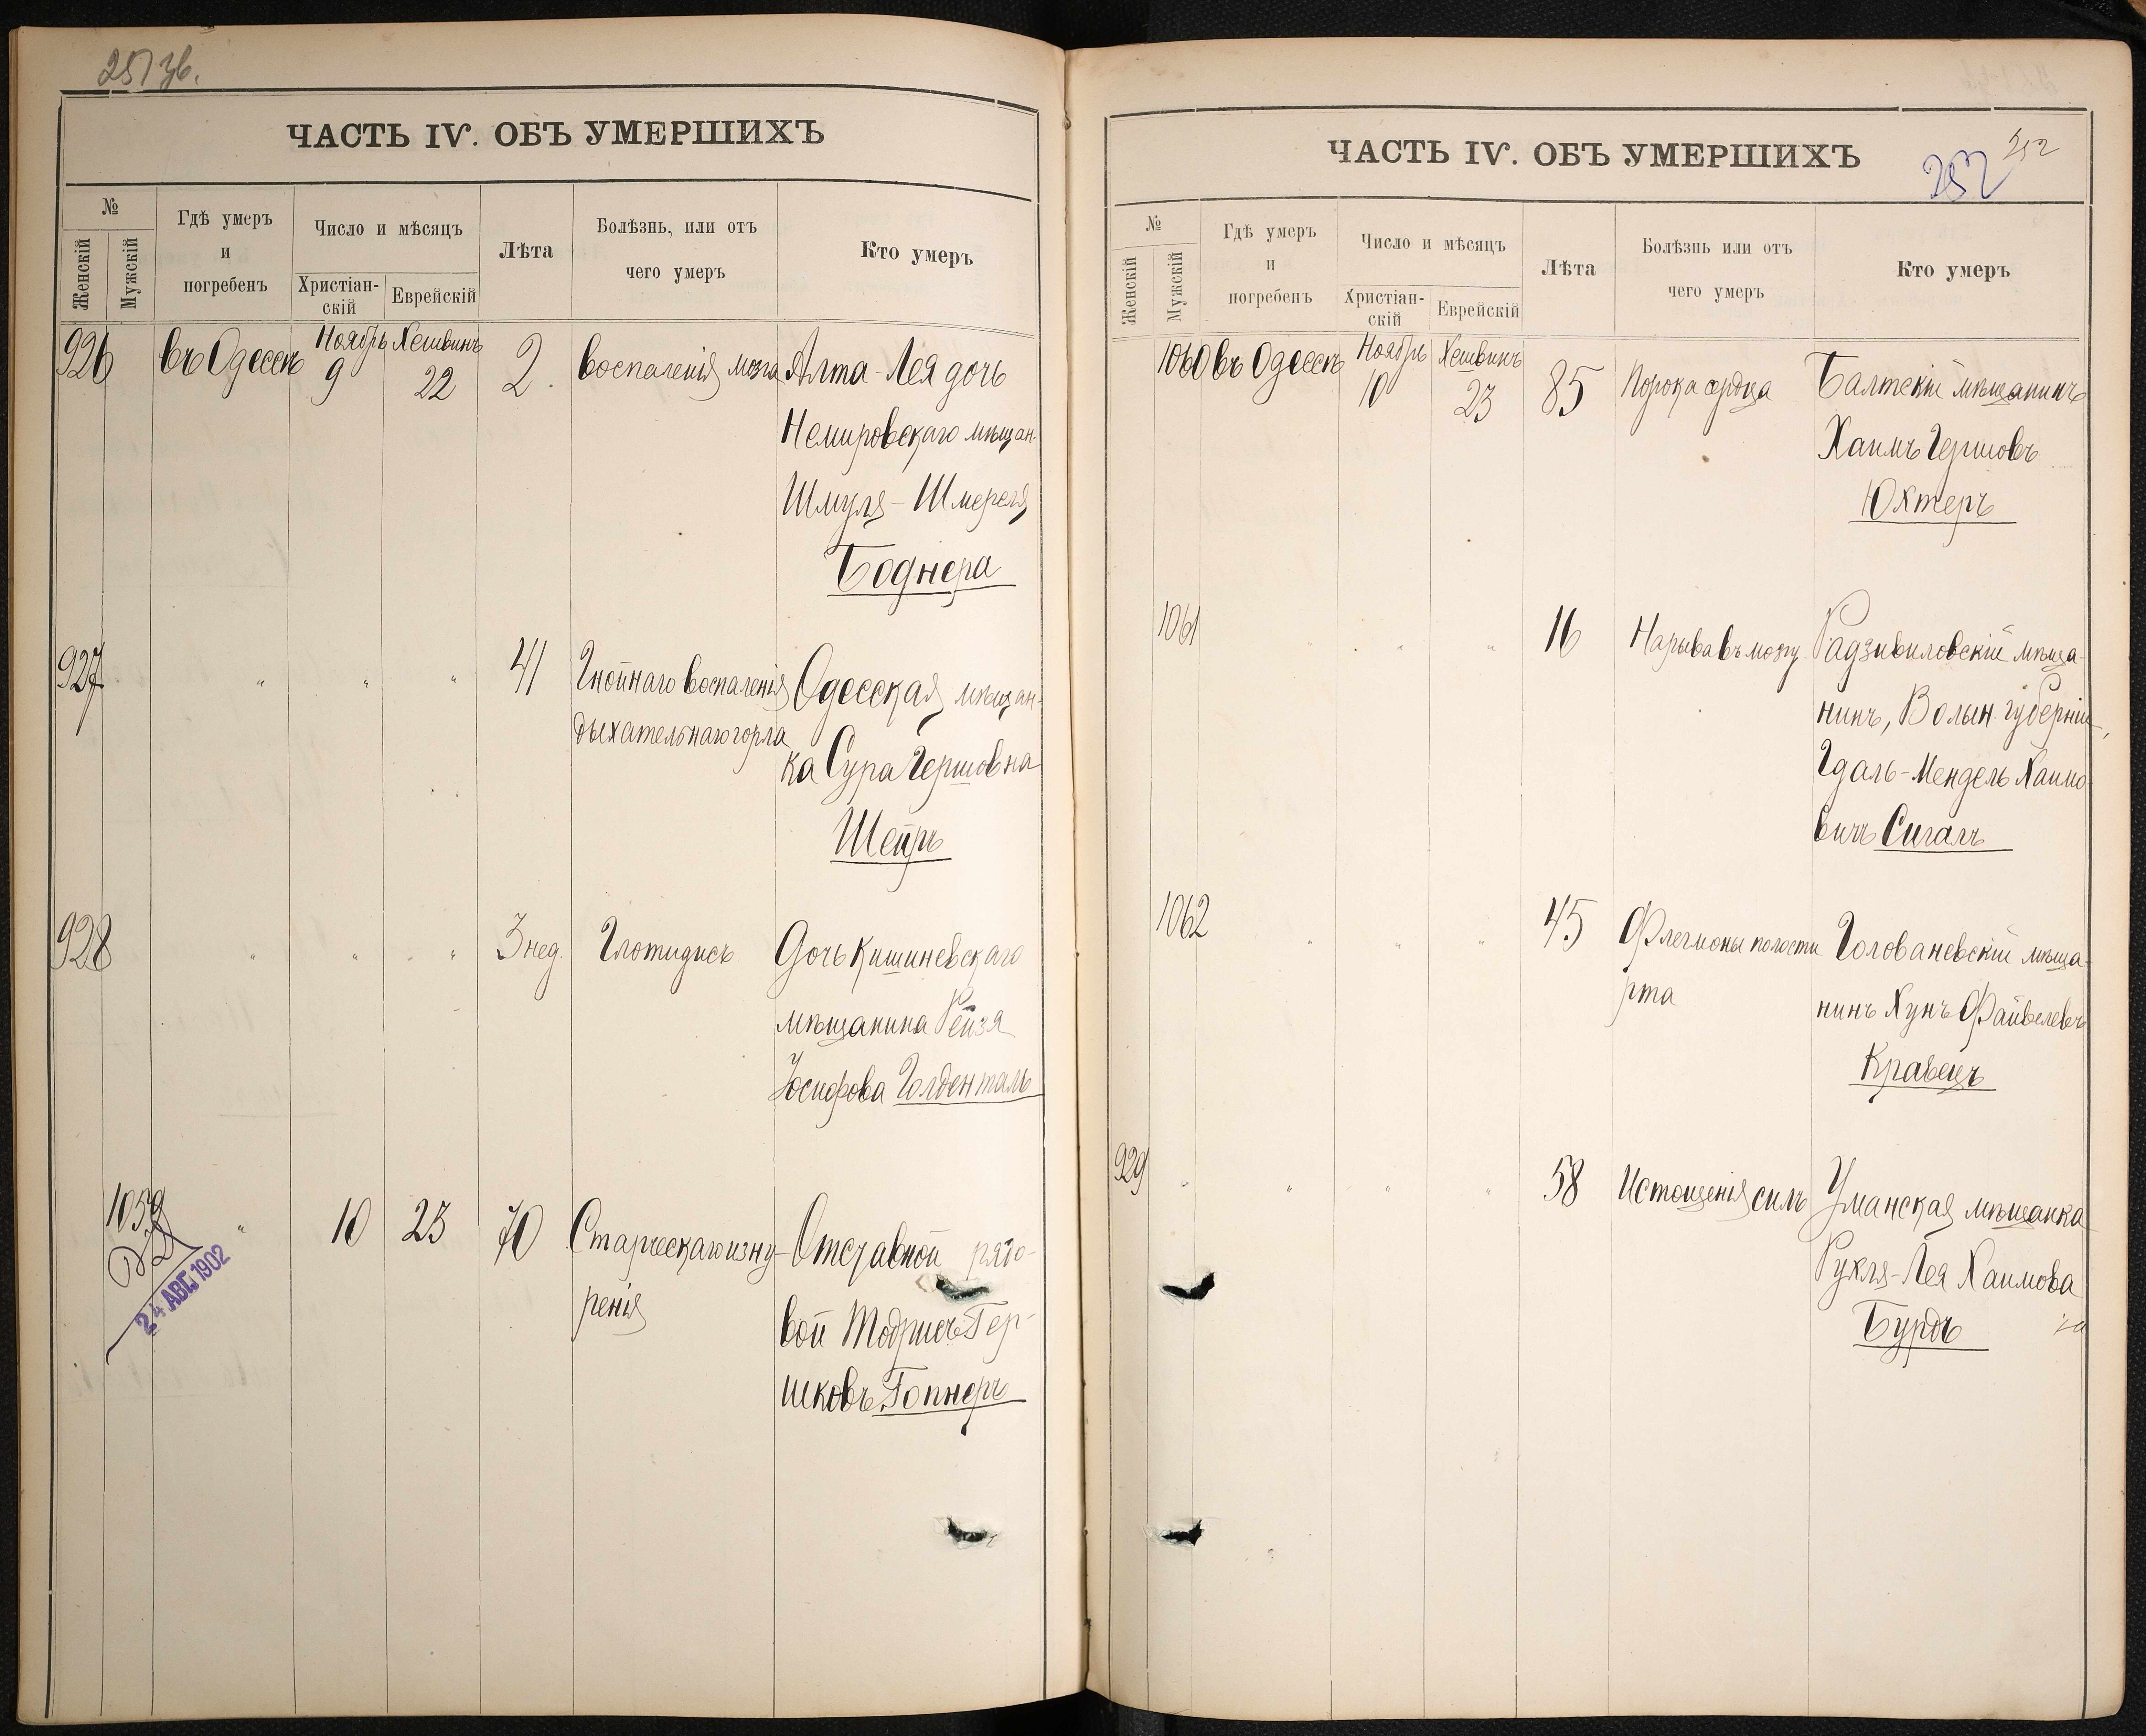 251 зв.
ЧАСТЬ IV. ОБЪ УМЕРШИХЪ
№
Женскій
Мужскій
Гдѣ умеръ
и
погребенъ
Число и мѣсяцъ
Христіан-
скій
Еврейскій
Лѣта
Болѣзнь, или отъ
чего умеръ
Кто умеръ
926 въ Одессѣ Ноябрь 9 Хешвинъ 22 2. воспаленія мозга Алта-Лея дочь
Немировскаго мѣщан.
Шмуля-Шмереля
Боднера
927 " " " 41 Гнойнаго воспаленія Одесская мѣщан-
дыхательнаго горла ка Сура Гершовна
Шейръ
928 " " " 3 нед. Глотидисъ Дочь Кишиневскаго
мѣщанина Рейзя
Іосифова Голденталь
1059 " 10 23 70 Старческаго изну- Отставной рядо-
ренія вой Тодрисъ Гер-
шковъ Гопнеръ
24 АВГ. 1902
ЧАСТЬ IV. ОБЪ УМЕРШИХЪ
252
252
№
Женскій
Мужскій
Гдѣ умеръ
и
погребенъ
Число и мѣсяцъ
Христіан-
скій
Еврейскій
Лѣта
Болѣзнь или отъ
чего умеръ
Кто умеръ
1060 въ Одессѣ Ноябрь 10 Хешвинъ 23 85 Порока сердца Балтскій мѣщанинъ
Хаимъ Гершовъ
Юхтеръ
1061 " " " 16 Нарыва въ мозгу Радзивиловскій мѣща-
нинъ, Волын. губерніи,
Гдаль-Мендель Хаимо-
вичъ Сигалъ
1062 " " " 45 Флегмоны полости Голованевскій мѣща-
рта нинъ Хунъ Файвелевъ
Кравецъ
929 " " " " 58 Истощенія силъ Уманская мѣщанка
Рухля-Лея Хаимова
Бурдъ